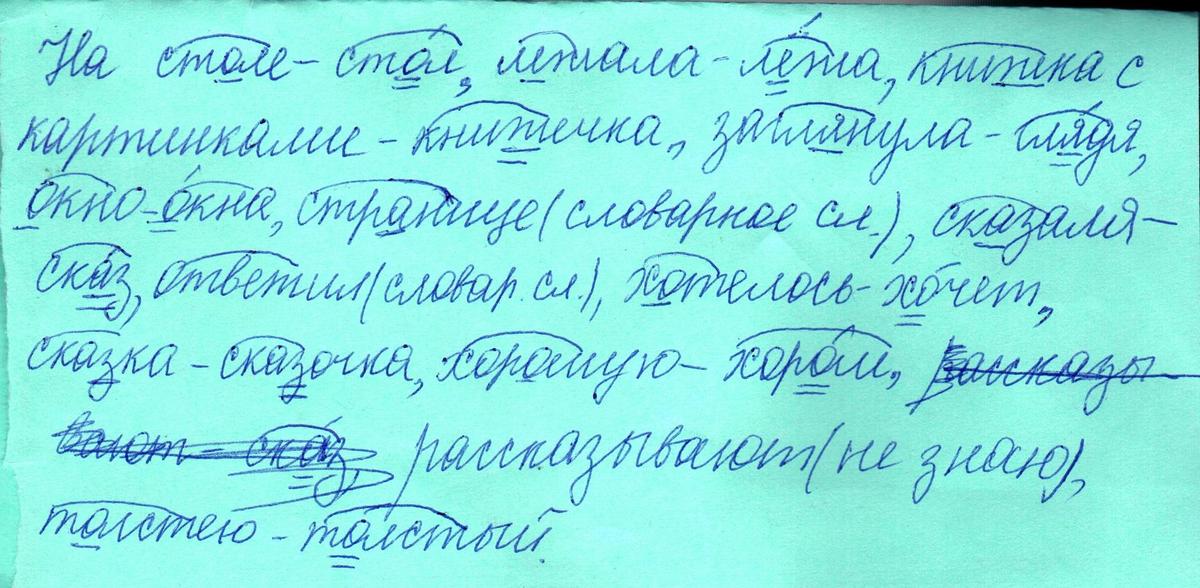 На столе – стол, лежала – лёжа, книжка с
картинками – книжечка, заглянула – глядя,
окно – окна, странице (словарное сл.), сказаля –
сказ, ответил (словар. сл.), хотелось – хочет,
сказка – сказочка, хорошую – хорош, рассказы-
вают – сказ, рассказывают (не знаю),
толстею – толстый.